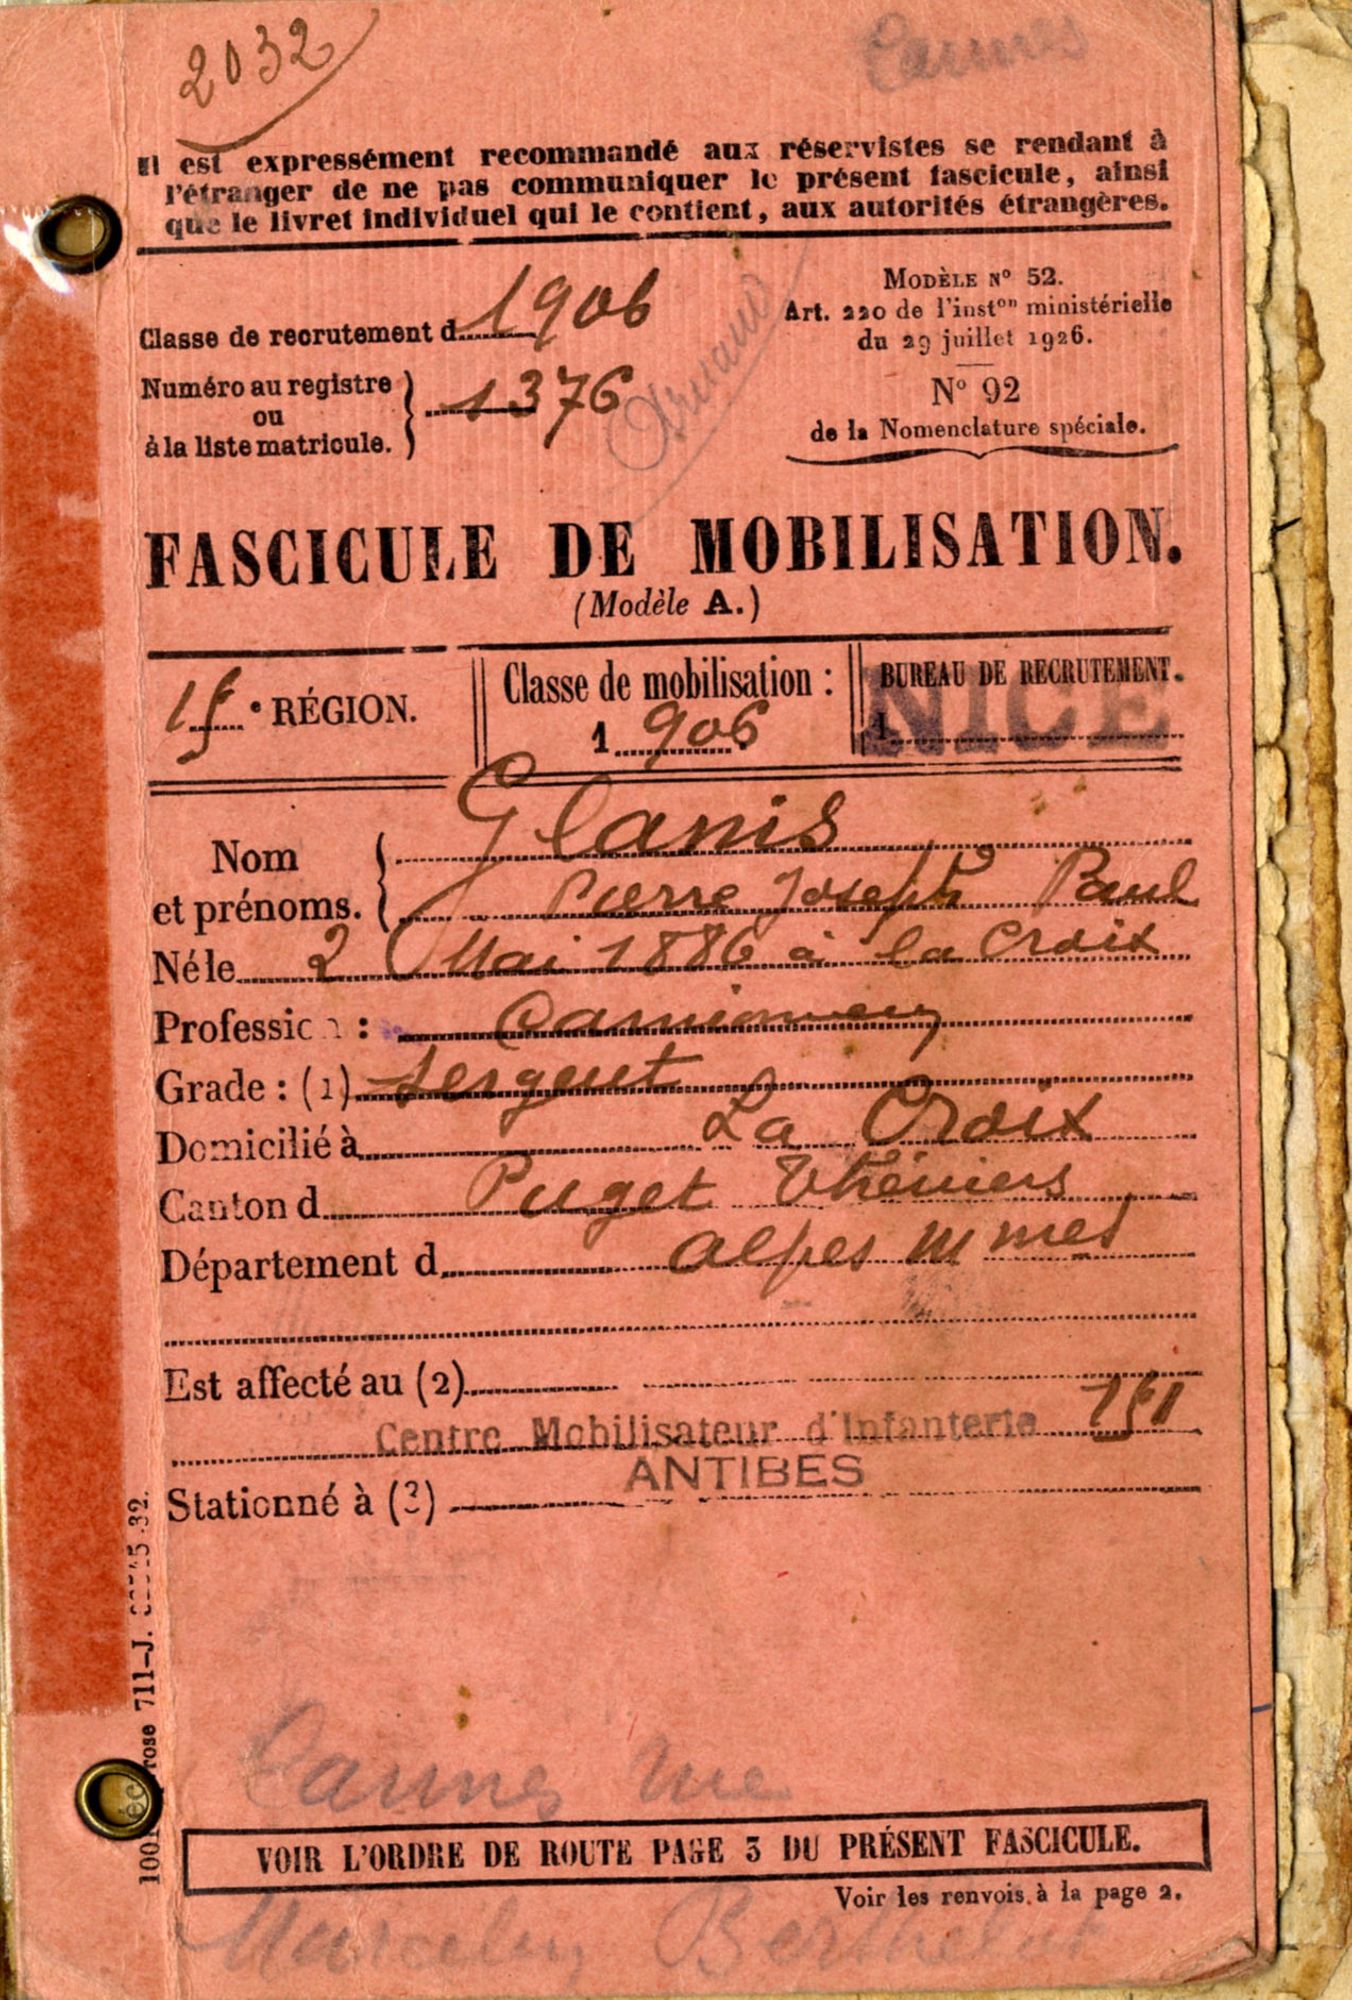 2032
Cannes
Il est expressément recommandé aux réservistes se rendant à
l'étranger de ne pas communiquer le présent fascicule, ainsi
que le livret individuel qui le contient, aux autorités étrangères.
MODÈLE N° 52.
Art. 220 de l'inston ministérielle
du 29 juillet 1926.
N° 92
de la Nomenclature spéciale.
Classe de recrutement d 1906
Numéro au registre
ou
à la liste matricule. } 1376
FASCICULE DE MOBILISATION.
(Modèle A.)
15e RÉGION.
Classe de mobilisation :
1906
BUREAU DE RECRUTEMENT.
NICE
Nom
et prénoms. {
Glanis
Pierre Joseph Paul
Né le 2 Mai 1886 à la Croix
Profession : Camionneur
Grade : (1) Sergent
Domicilié à La Croix
Canton d Puget Théniers
Département d Alpes Mmes
Est affecté au (2)
Centre Mobilisateur d'Infanterie 151
ANTIBES
Stationné à (3)
Cannes rue
VOIR L'ORDRE DE ROUTE PAGE 3 DU PRÉSENT FASCICULE.
Voir les renvois à la page 2.
Marcelin Berthelot
rose 711-J.